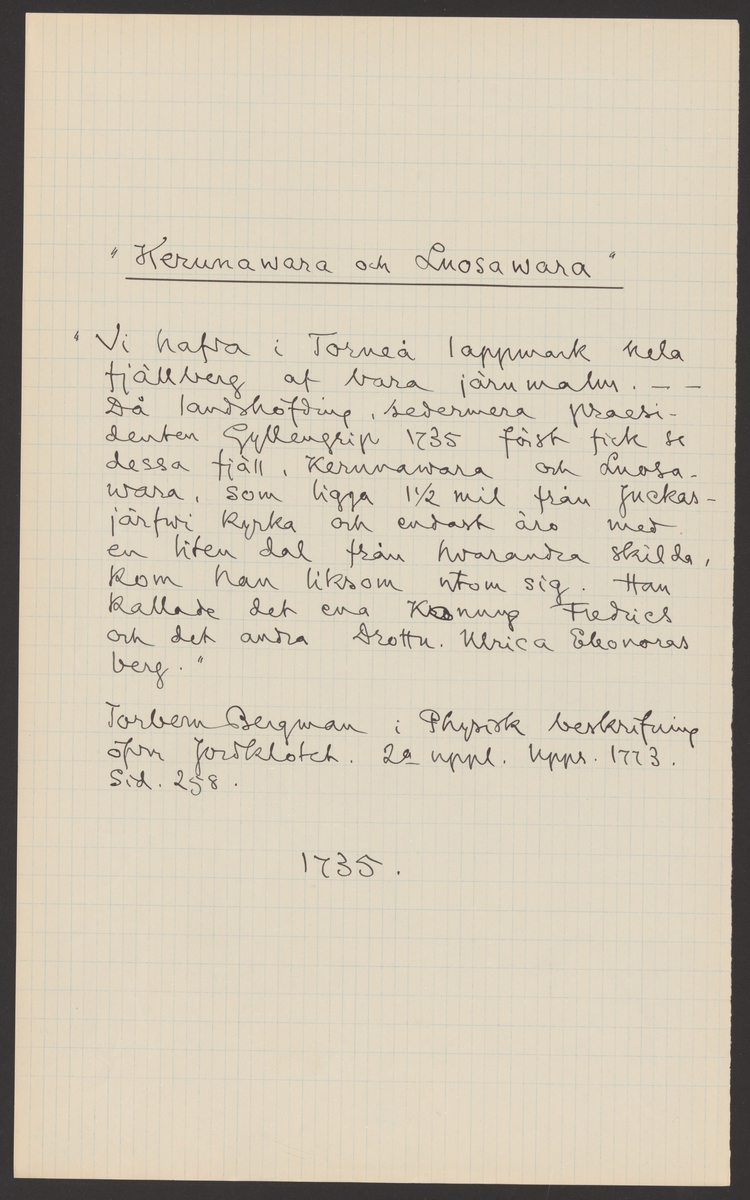 "Kerunawara och Luosawara"
"Vi hafva i Torneå lappmark hela
fjällberg af bara järnmalm. — —
Då landshöfding, sedermera praesi-
denten Gyllengrip 1735 först fick se
dessa fjäll, Kerunawara och Luosa-
wara, som ligga 1 1/2 mil från Juckas-
järfwi kyrka och endast äro med
en liten dal från hvarandra skilda,
kom han liksom utom sig. Han
kallade det ena Konung Fredrics
och det andra Drottn. Ulrica Eleonoras
berg."
Torbern Bergman i Physisk beskrifning
öfver Jordklotet. 2a uppl. Upps. 1773.
Sid. 258.
1735.